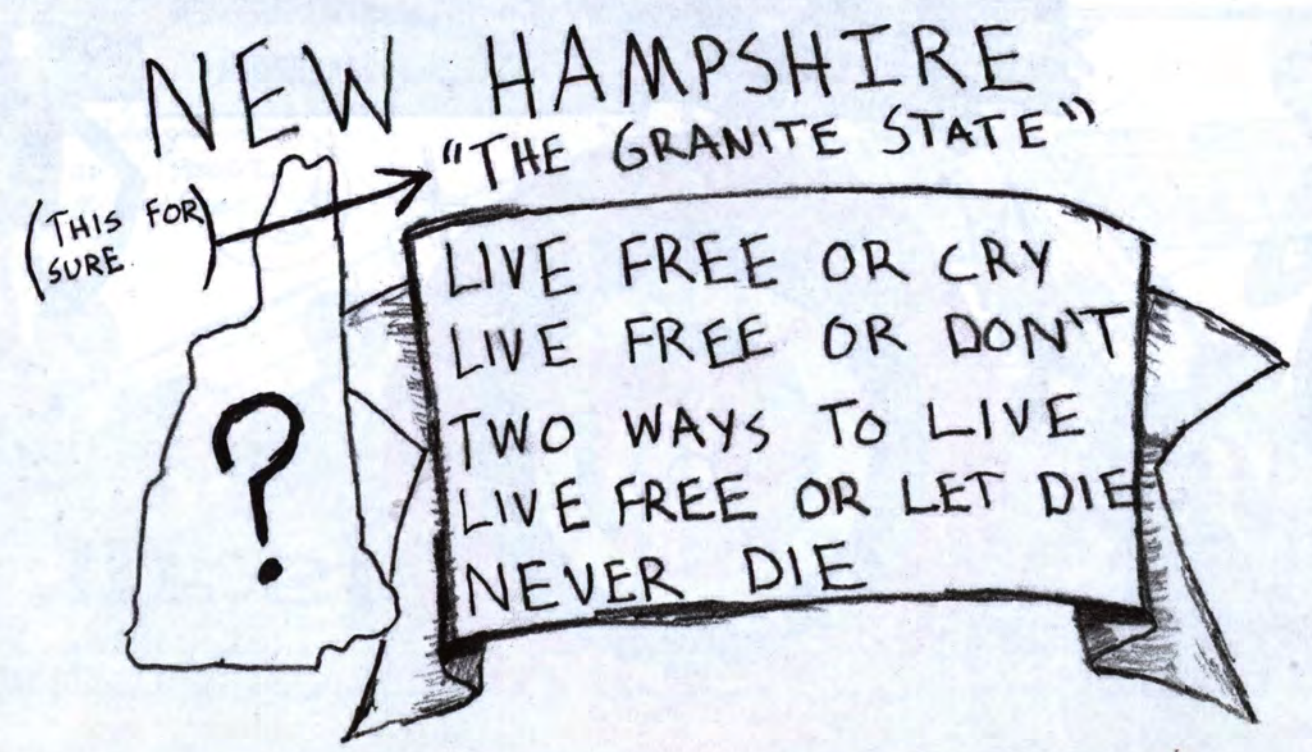 NEW HAMPSHIRE
"THE GRANITE STATE"
(THIS FOR
SURE)
?
LIVE FREE OR CRY
LIVE FREE OR DON'T
TWO WAYS TO LIVE
LIVE FREE OR LET DIE
NEVER DIE